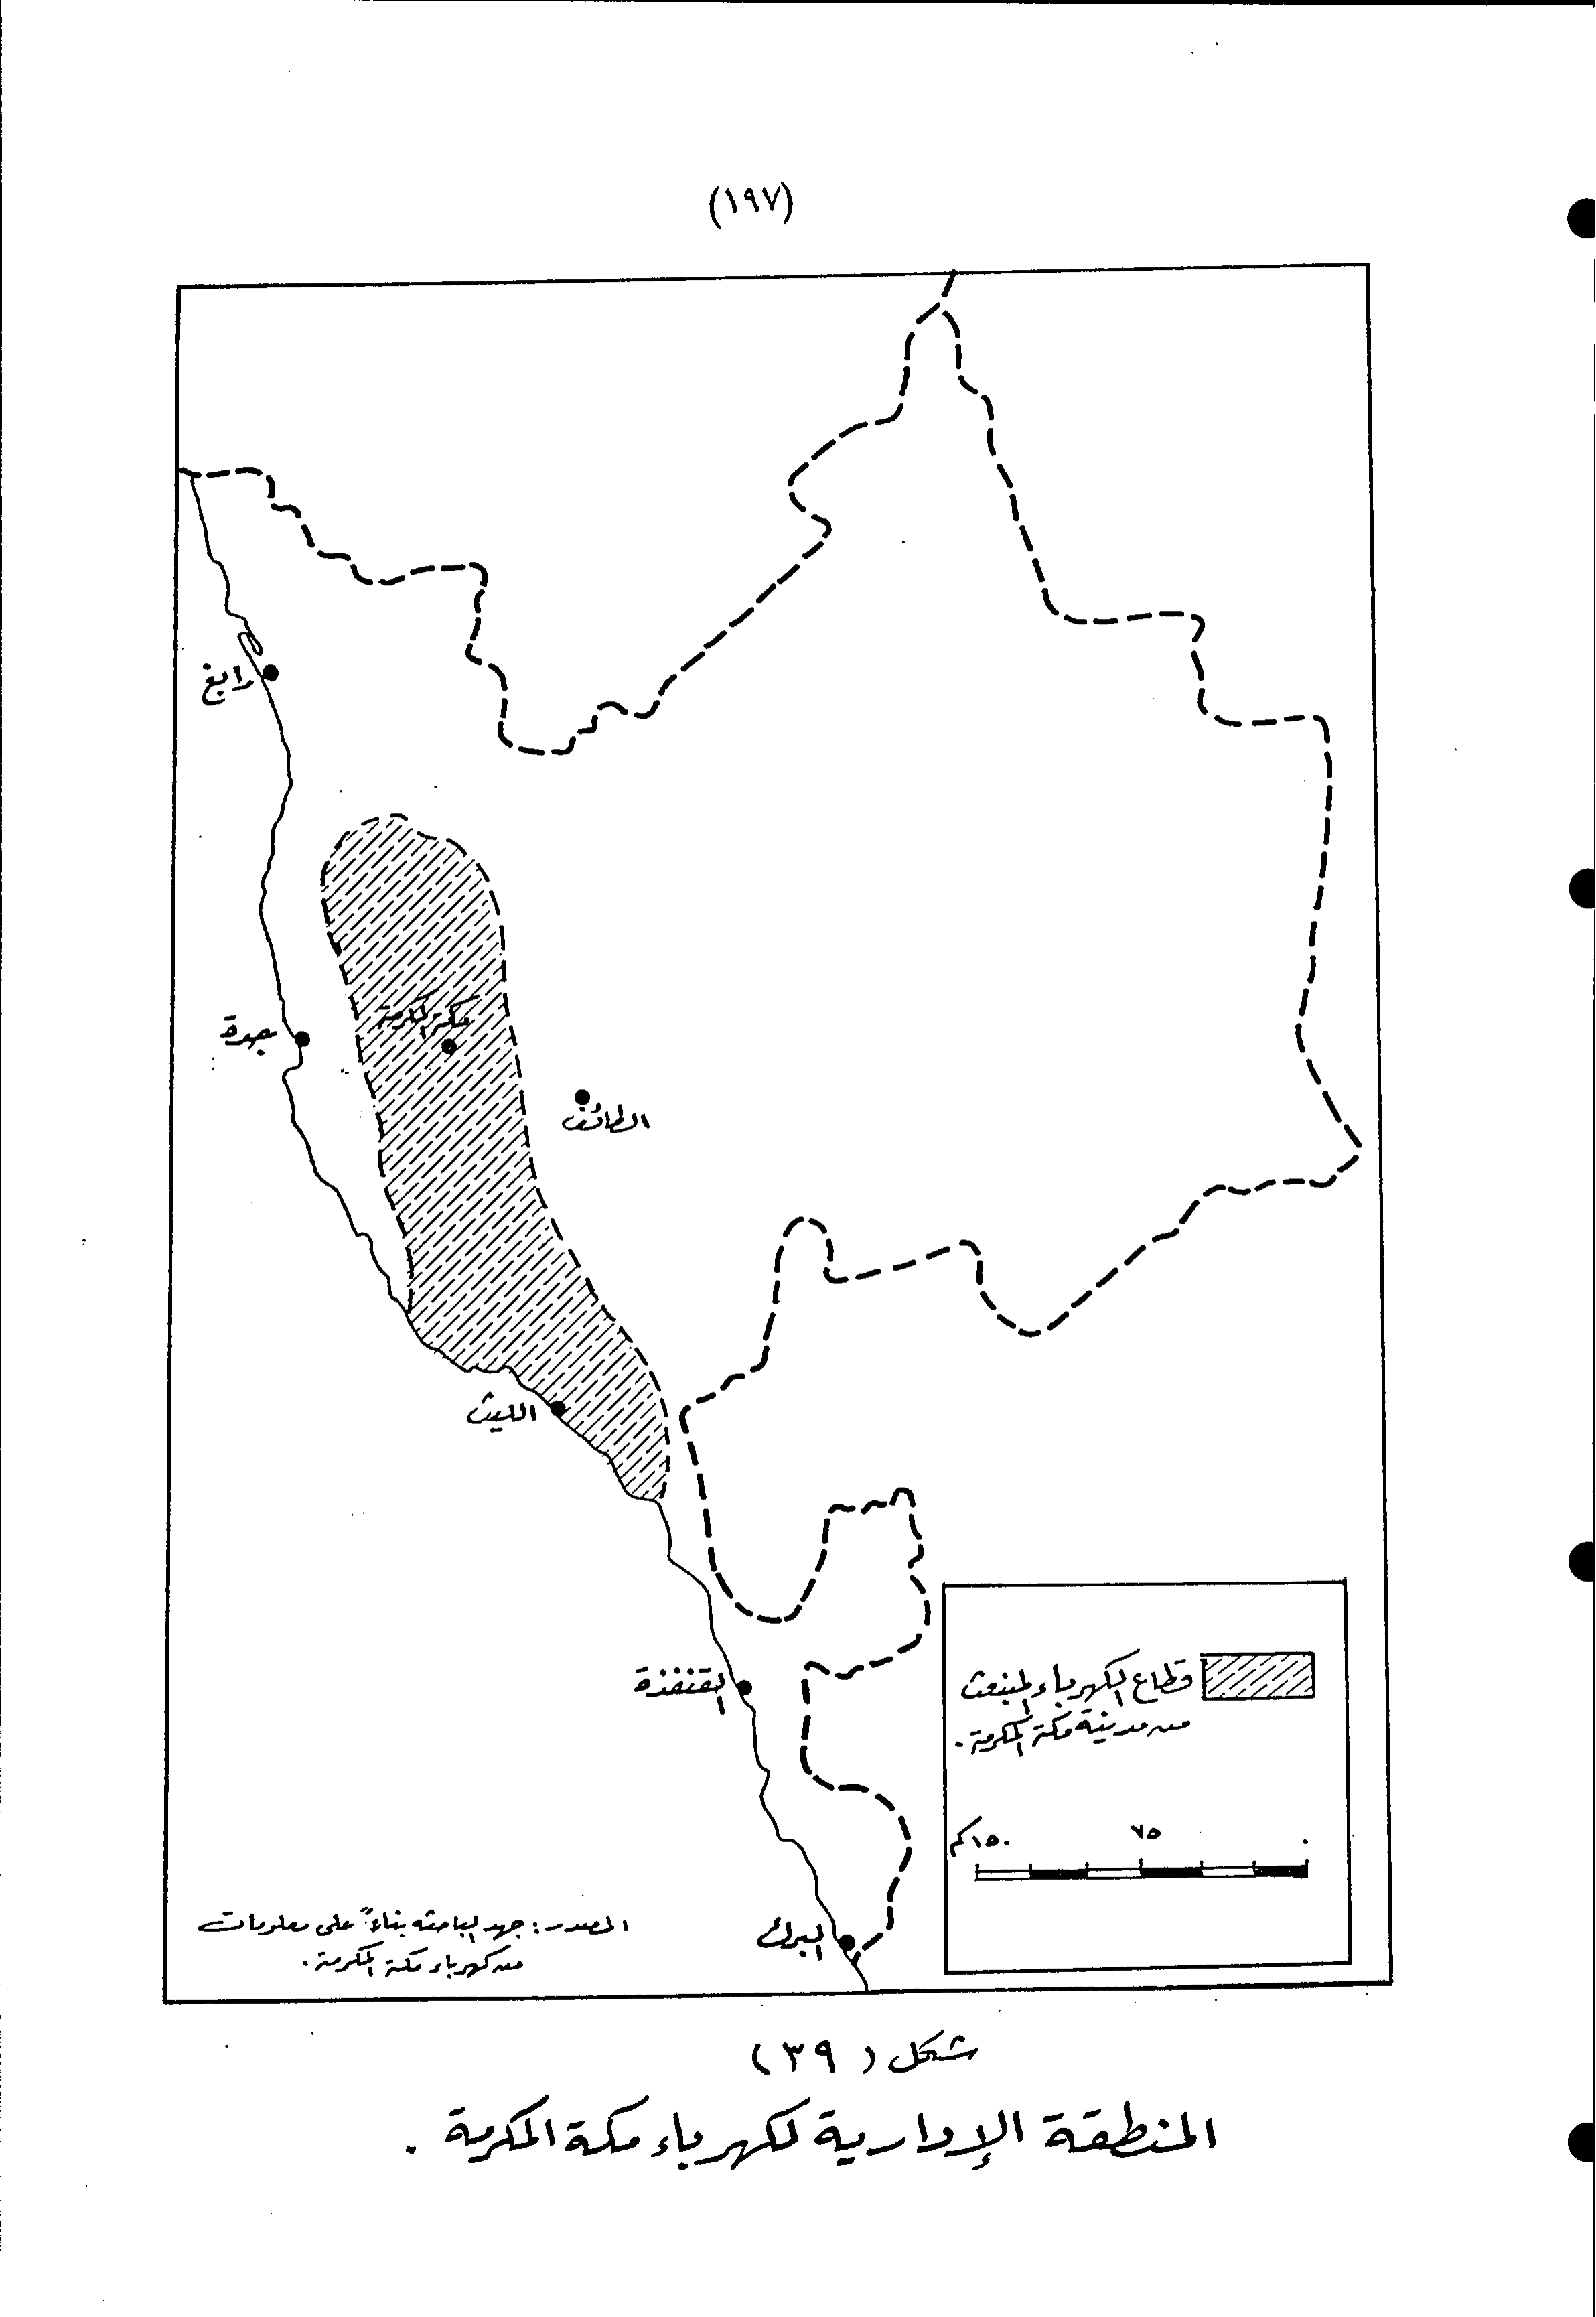 (١٩٧)
رابغ
مكة المكرمة
جدة
الطائف
الليث
القنفذة
البرك
قطاع الكهرباء المنبعث
من مدينة مكة المكرمة.
٠ ٧٥ ١٥٠ كم
المصدر: جهد الباحثه بناءً على معلومات
من كهرباء مكة المكرمة.
شكل (٣٩)
المنطقة الإدارية لكهرباء مكة المكرمة.